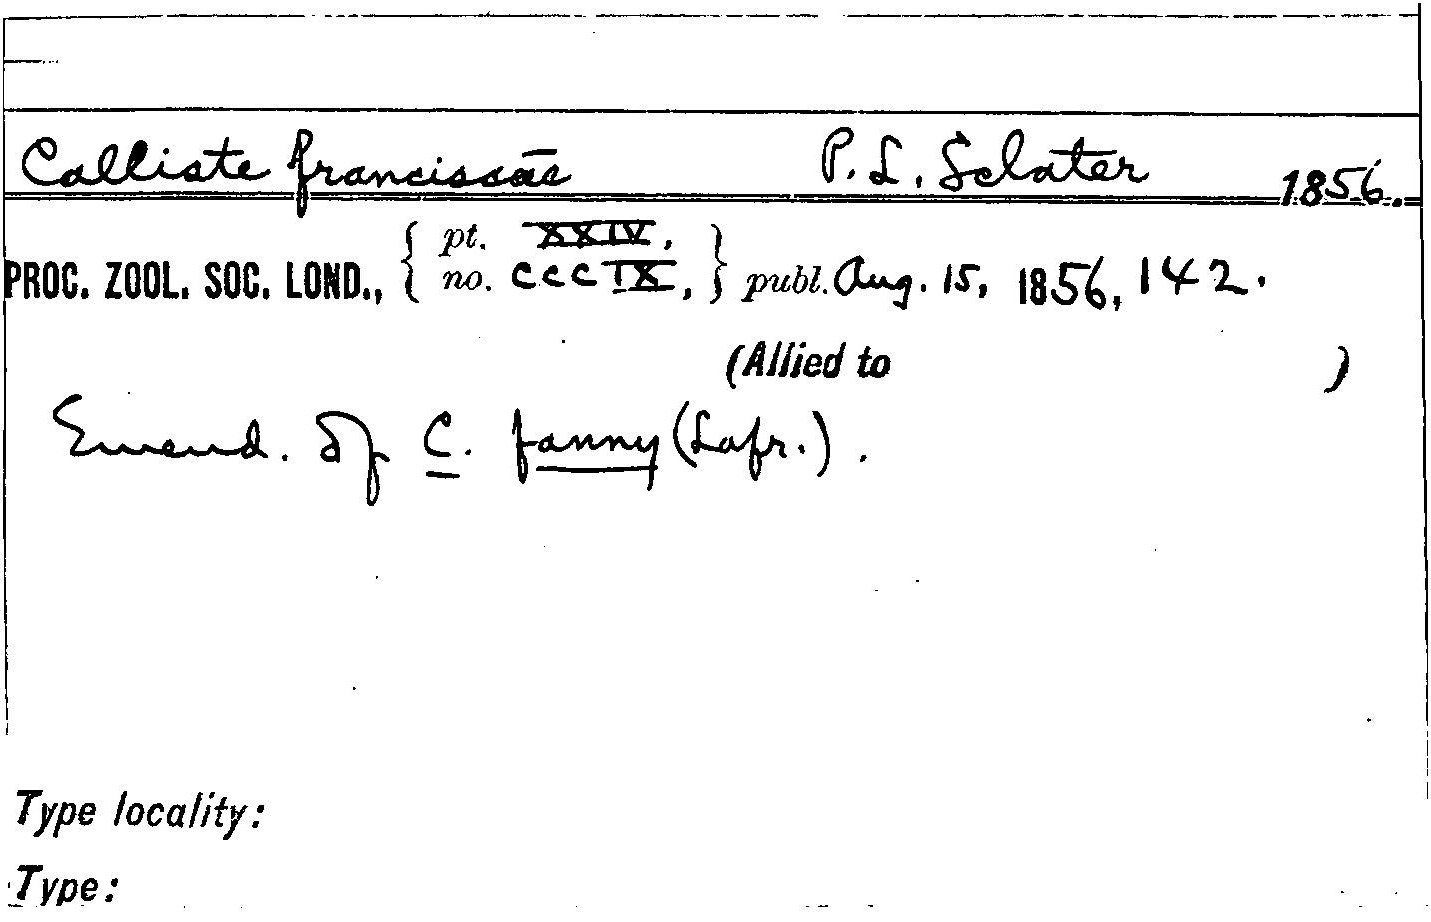 Calliste franciscæ P. L. Sclater 1856.
PROC. ZOOL. SOC. LOND., { pt. XXIV, } publ. Aug. 15, 1856, 142.
no. CCCIX,
(Allied to )
Emend. of C. fanny (Lafr.).
Type locality:
Type: